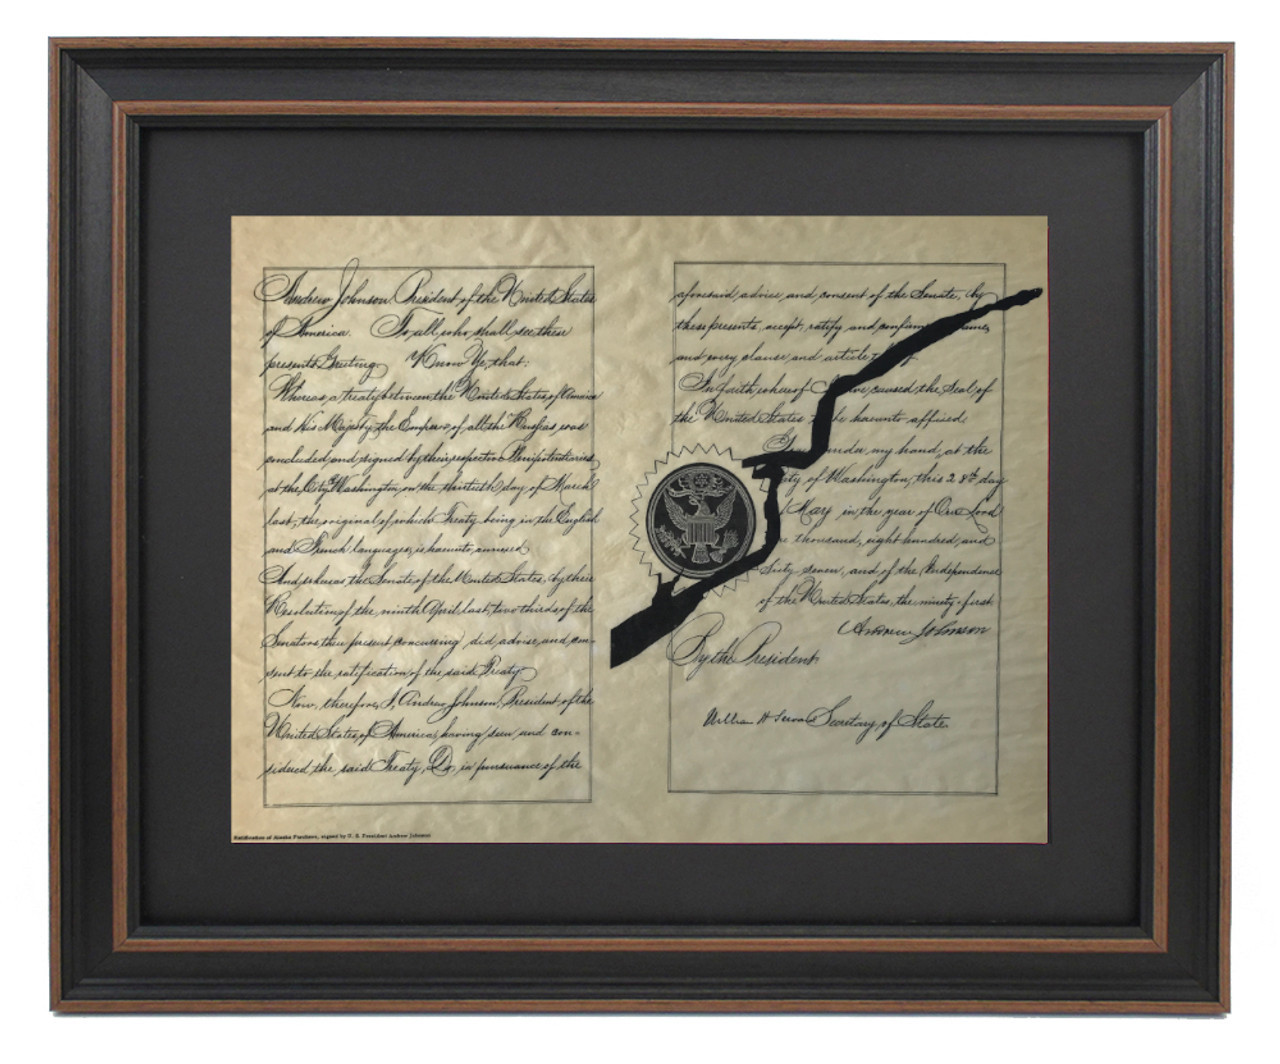 Andrew Johnson President of the United States
of America. To all who shall see these
presents Greeting: Know Ye, that:
Whereas, a treaty between the United States of America
and His Majesty the Emperor of all the Russias was
concluded and signed by their respective Plenipotentiaries
at the City of Washington, on the thirtieth day of March
last, the original of which Treaty being in the English
and French languages, is hereunto annexed
And whereas, the Senate of the United States, by their
Resolution of the ninth April last, two thirds of the
Senators then present concurring did advise and con-
sent to the ratification of the said Treaty.
Now, therefore, I, Andrew Johnson, President of the
United States of America, having seen and con-
sidered the said Treaty, Do, in pursuance of the
aforesaid advice and consent of the Senate, by
these presents, accept, ratify and confirm same,
and every clause and article
In faith whereof caused the Seal of
the United States be hereunto affixed
under my hand, at the
City of Washington, this 28th day
May in the year of Our Lord
thousand, eight hundred, and
sixty seven, and of the Independence
of the United States, the ninety-first
Andrew Johnson
By the President:
William H Seward Secretary of State
Ratification of Alaska Purchase, signed by U. S. President Andrew Johnson